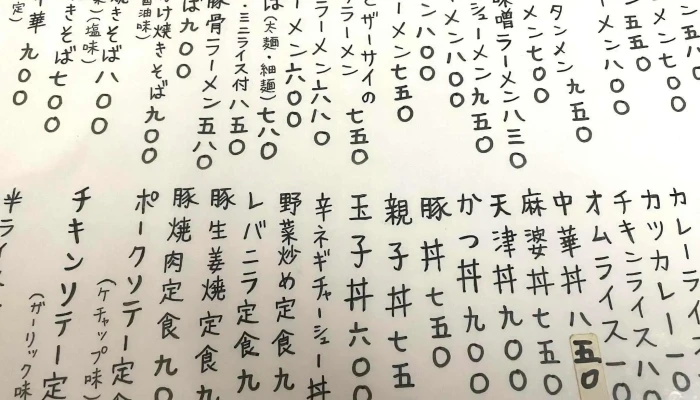 メン七〇〇
メン五五〇
ーメン八〇〇
タンメン九五〇
メン七〇〇
味噌ラーメン八三〇
シューメン九五〇
メン八〇〇
ーメン八〇〇
ーメン七五〇
とザーサイの
ラーメン七五〇
ラーメン六八〇
ーメン六〇〇
ば(太麺・細麺)七八〇
・ミニライス付八五〇
豚骨ラーメン五八〇
ば八〇〇
け焼きそば九〇〇
醤油味)
焼きそば八〇〇
(塩味)
きそば七〇〇
華九〇〇
定)
カレーライ
カツカレー一〇
チキンライス八〇
オムライス一〇
中華丼八五〇
麻婆丼七五〇
天津丼九〇〇
かつ丼九〇〇
豚丼七五〇
親子丼七五
玉子丼六〇〇
辛ネギチャーシュー丼
野菜炒め定食九
レバニラ定食九
豚生姜焼定食九
豚焼肉定食九〇
ポークソテー定食
(ケチャップ味)
チキンソテー定
(ガーリック味
半ライス